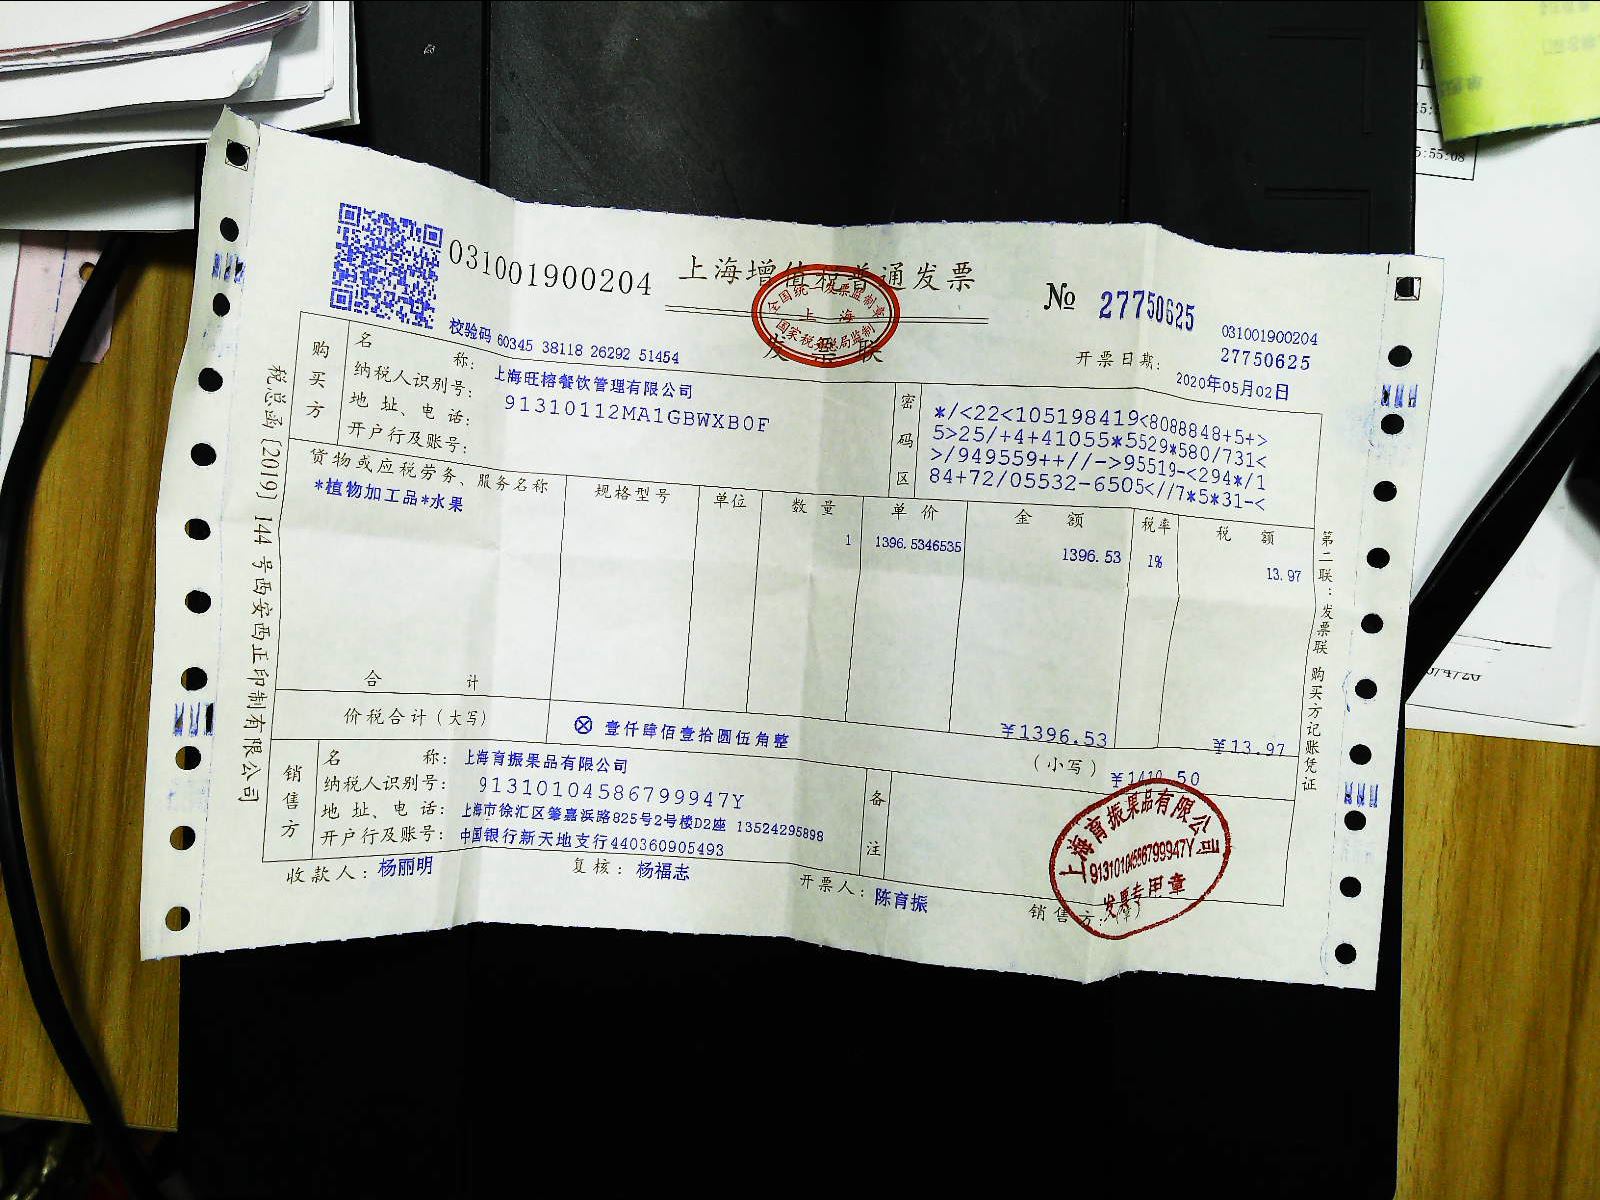 031001900204
上海增值税普通发票
发票联
全国统一发票监制章
上海
国家税务总局监制
№ 27750625
031001900204
27750625
校验码 60345 38118 26292 51454
开票日期: 2020年05月02日
购买方
名称: 上海旺榕餐饮管理有限公司
纳税人识别号: 91310112MA1GBWXB0F
地址、电话:
开户行及账号:
密码区
*/<22<105198419<8088848+5+>
5>25/+4+41055*5529*580/731<
>/949559++//->95519-<294*/1
84+72/05532-6505<//7*5*31-<
货物或应税劳务、服务名称 规格型号 单位 数量 单价 金额 税率 税额
*植物加工品*水果 1 1396.5346535 1396.53 1% 13.97
合计 ¥1396.53 ¥13.97
价税合计(大写) ⊗壹仟肆佰壹拾圆伍角整 (小写) ¥1410.50
销售方
名称: 上海育振果品有限公司
纳税人识别号: 91310104586799947Y
地址、电话: 上海市徐汇区肇嘉浜路825号2号楼D2座 13524295898
开户行及账号: 中国银行新天地支行440360905493
备注
收款人: 杨丽明 复核: 杨福志 开票人: 陈育振 销售方:(章)
上海育振果品有限公司
91310104586799947Y
发票专用章
税总函[2019]144号西安西正印制有限公司
第二联:发票联 购买方记账凭证
5:55:08